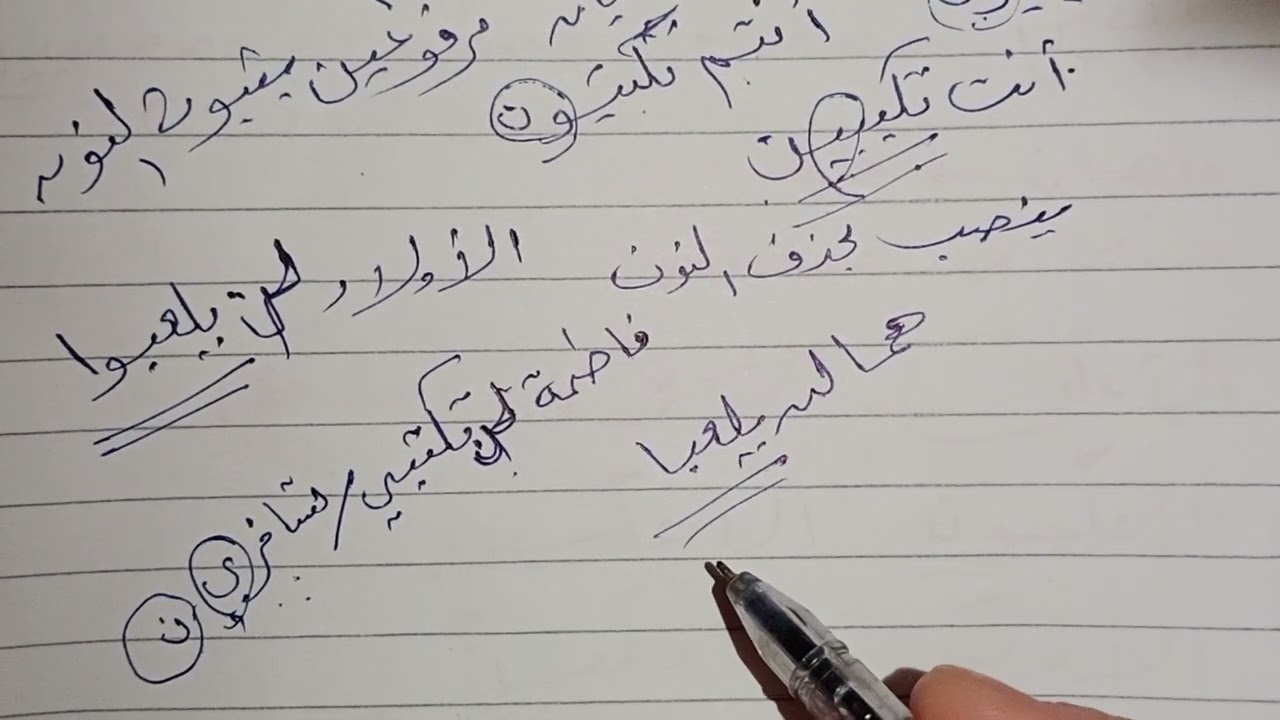 أنتم تكتبون مرفوعين بثبوت النون
أنت تكتبين
ينصب بحذف النون الأولاد لن يلعبوا
هما لن يلعبا
فاطمة لن تكتبي / تسافري ن